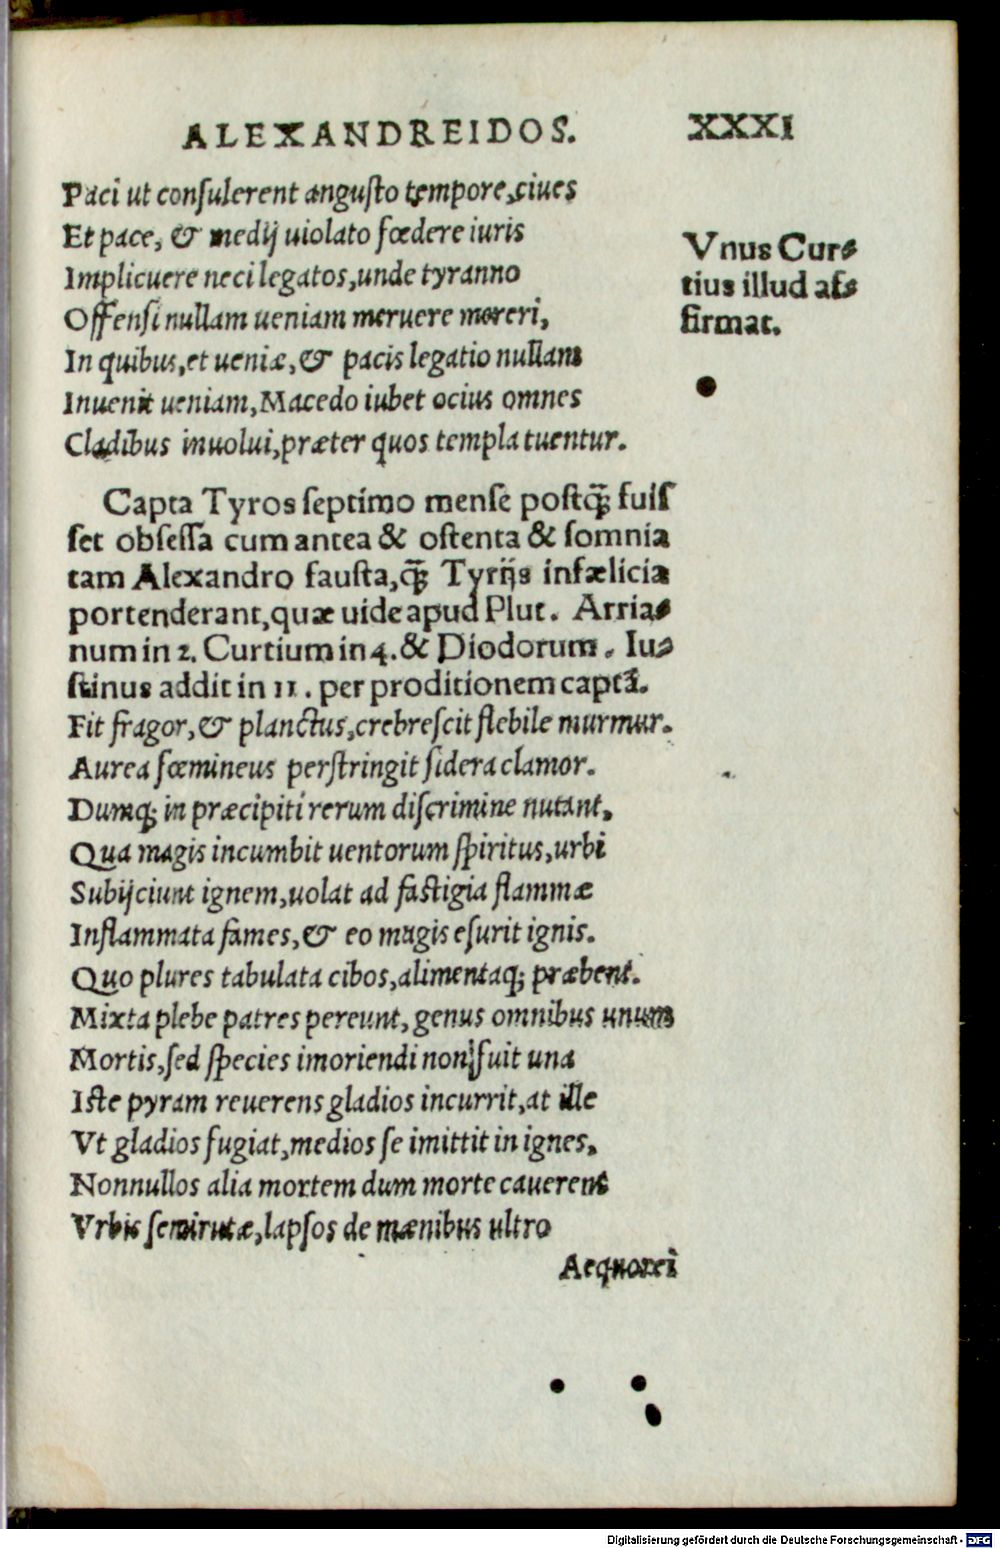 ALEXANDREIDOS. XXXI
Paci ut conſulerent anguſto tempore, ciues
Et pace, & medij uiolato fœdere iuris
Implicuere neci legatos, unde tyranno
Offenſi nullam ueniam meruere mereri,
In quibus, et ueniæ, & pacis legatio nullam
Inuenit ueniam, Macedo iubet ocius omnes
Cladibus inuolui, præter quos templa tuentur.
Vnus Cur⸗
tius illud aſ⸗
firmat.
Capta Tyros ſeptimo menſe poſtq̃ fuiſ
ſet obſeſſa cum antea & oſtenta & ſomnia
tam Alexandro fauſta, q̃ Tyrijs infælicia
portenderant, quæ uide apud Plut. Arria⸗
num in 2. Curtium in 4. & Diodorum. Iu⸗
ſtinus addit in 11. per proditionem captã.
Fit fragor, & planctus, crebreſcit flebile murmur.
Aurea fœmineus perſtringit ſidera clamor.
Dumq; in præcipiti rerum diſcrimine nutant,
Qua magis incumbit uentorum ſpiritus, urbi
Subijciunt ignem, uolat ad faſtigia flammæ
Inflammata fames, & eo magis eſurit ignis.
Quo plures tabulata cibos, alimentaq; præbent.
Mixta plebe patres pereunt, genus omnibus unum
Mortis, ſed ſpecies imoriendi non fuit una
Iſte pyram reuerens gladios incurrit, at ille
Vt gladios fugiat, medios ſe imittit in ignes,
Nonnullos alia mortem dum morte cauerent
Vrbis ſemirutæ, lapſos de mænibus ultro
Aequorei
Digitalisierung gefördert durch die Deutsche Forschungsgemeinschaft - DFG